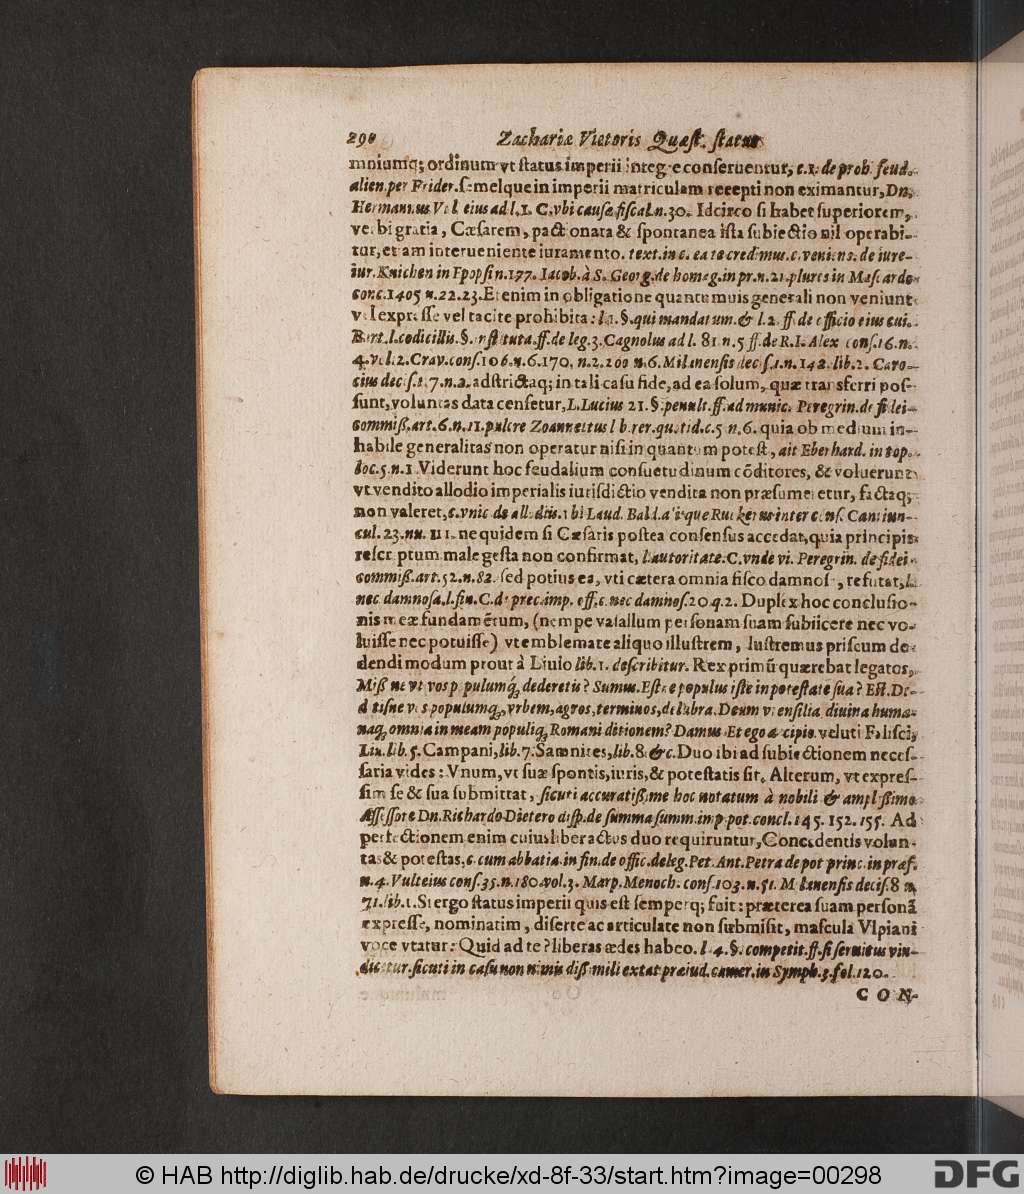 290 Zachariæ Victoris Quæst. status
mniumq; ordinum vt status imperii integre conseruentur, c.1. de prob. feud.
alien. per Frider. semelque in imperii matriculam recepti non eximantur, Dn.
Hermannus Vul eius ad l.1. C. vbi causæ fiscal. n.30. Idcirco si habet superiorem,
verbi gratia, Cæsarem, pactionata & spontanea ista subiectio nil operabi-
tur, etiam interueniente iuramento. text. in c. ea te credimus. c. veniens. de iure-
iur. Knichen in Epopsi n.177. Iacob. à S. Georg. de homag. in pr. n.21. plures in Mascardo
conc. 1405 n.22.23. Etenim in obligatione quantumuis generali non veniunt
vel expresse vel tacite prohibita: l.1. §. qui mandatum. & l.2. ff. de officio eius cui.
Bart. l. codicillis. §. instituta. ff. de leg. 3. Cagnolus ad l. 81 n.5 ff. de R.I. Alex cons. 16. n.
4. vol. 2. Crav. cons. 106. n.6. 170. n.2. 200 n.6. Milanensis decis. 1. n. 142. lib. 2. Caro-
cius decis. 17. n.2. adstrictaq; in tali casu fide, ad ea solum, quæ transferri pos-
sunt, voluntas data censetur, L. Lucius 21. §. penult. ff. ad munic. Peregrin. de fidei-
commiß. art. 6. n. 11. pulcre Zoannettus lib. rer. quotid. c.5 n.6. quia ob medium in-
habile generalitas non operatur nisi in quantum potest, ait Eberhard. in top.
loc. 5. n. 1. Viderunt hoc feudalium consuetudinum cōditores, & voluerunt
vt vendito allodio imperialis iurisdictio vendita non præsumeretur, factaq;
non valeret, c. vnic. de allodiis. vbi Laud. Bald. aliique Ruckerus inter cons. Cantiun-
cul. 23. nu. 111. ne quidem si Cæsaris postea consensus accedat, quia principis
rescriptum male gesta non confirmat, l. autoritate. C. vnde vi. Peregrin. de fidei-
commiß. art. 52. n. 82. sed potius ea, vti cætera omnia fisco damnosa, refutat, l.
nec damnosa. l. fin. C. de prec. imp. off. c. nec damnos. 20. q.2. Duplex hoc conclusio-
nis meæ fundamētum, (nempe vasallum personam suam subiicere nec vo-
luisse nec potuisse) vt emblemate aliquo illustrem, lustremus priscum de-
dendi modum prout à Liuio lib. 1. describitur. Rex primū quærebat legatos,
Miß ne vt vos populumq́; dederetis? Sumus. Estne populus iste in potestate sua? Est. De-
ditisne vos populumq;, vrbem, agros, terminos, delubra. Deum vtensilia, diuina huma-
naq; omnia in meam populiq; Romani ditionem? Damus. Et ego accipio. veluti Falisci,
Liu. lib. 5. Campani, lib. 7. Samnites, lib. 8. &c. Duo ibi ad subiectionem neces-
saria vides: Vnum, vt suæ spontis, iuris, & potestatis sit. Alterum, vt expres-
sim se & sua submittat, sicuti accuratißime hoc notatum à nobili & amplißimo
Assessore Dn. Richardo Dietero disp. de summa summ. imp. pot. concl. 145. 152. 155. Ad
perfectionem enim cuiuslibet actus duo requiruntur, Concedentis volun-
tas & potestas, c. cum abbatia. in fin. de offic. deleg. Pet. Ant. Petra de pot princ. in præf.
n. 4. Vulteius cons. 35. n. 180. vol. 3. Marp. Menoch. cons. 103. n. 51. Milanensis decis. 8 n.
71. lib. 1. Si ergo status imperii quis est semperq; fuit: præterea suam personā
expresse, nominatim, diserte ac articulate non submisit, mascula Vlpiani
voce vtatur: Quid ad te? liberas ædes habeo. l. 4. §. competit. ff. si seruitus vin-
dicetur. sicuti in casu non nimis dißimili extat præiud. camer. in Symph. 3. fol. 120.
CON-
© HAB http://diglib.hab.de/drucke/xd-8f-33/start.htm?image=00298
DFG